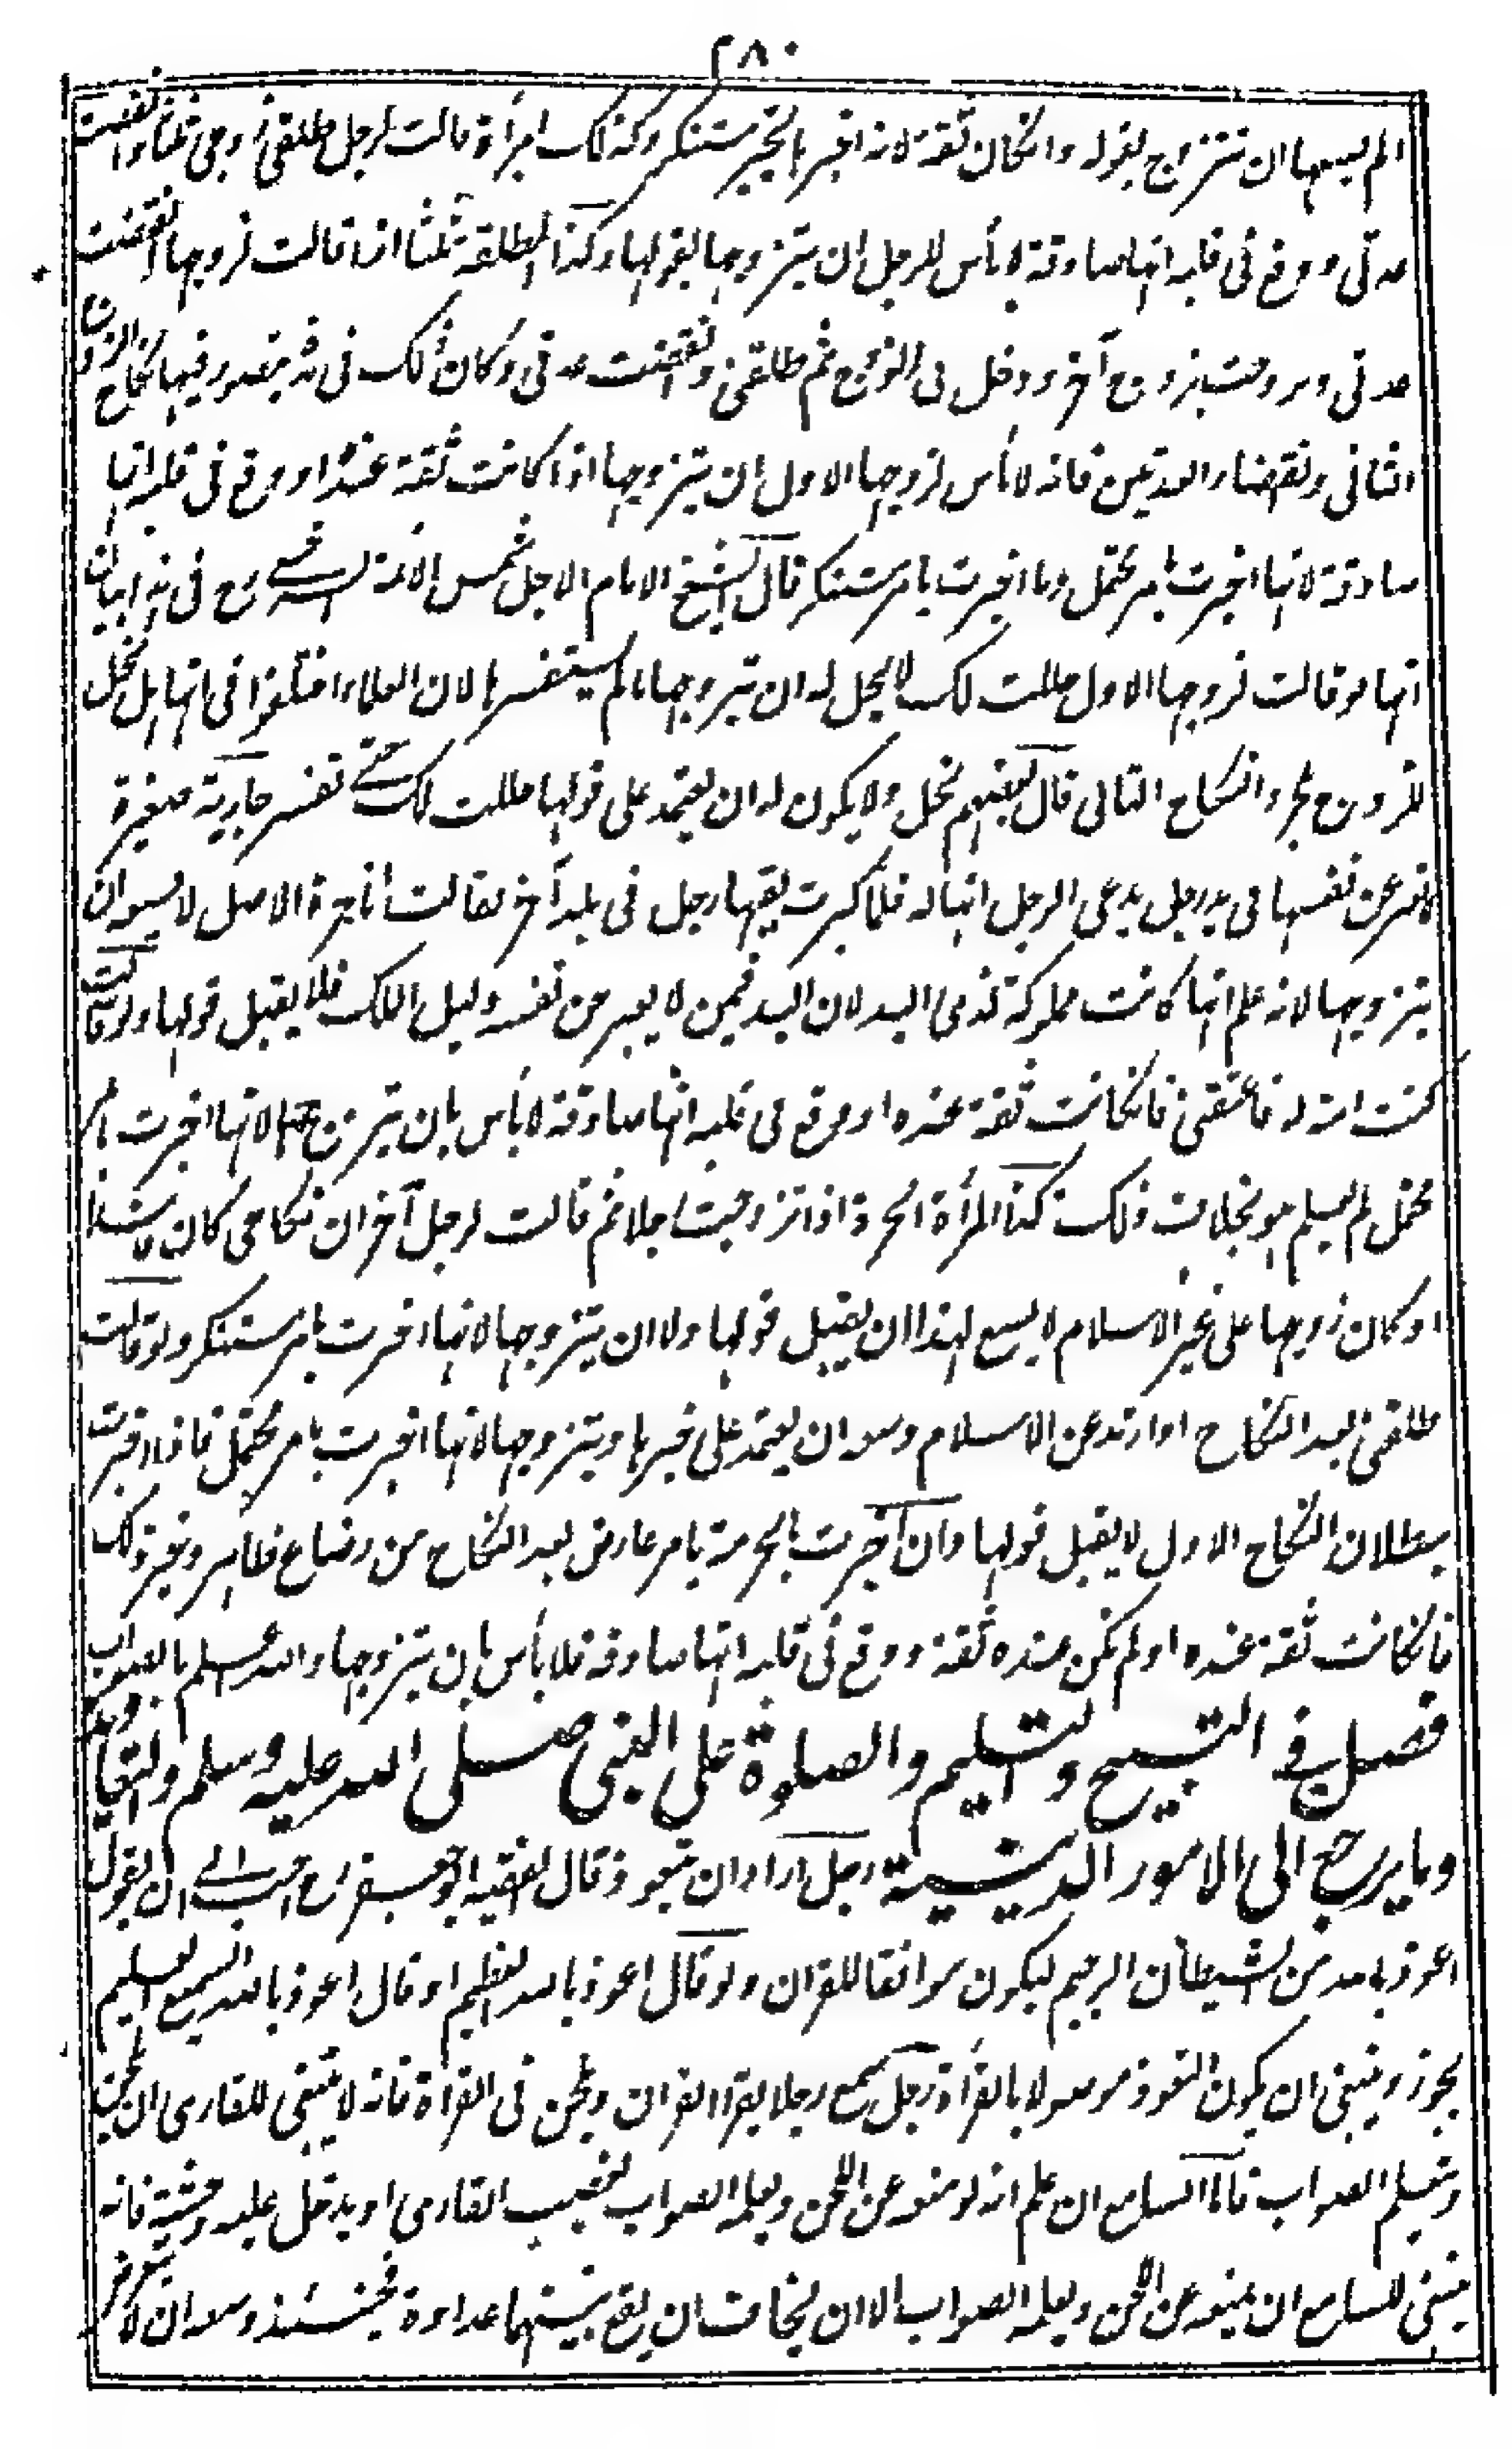 ٢٨٠
لم يسعها ان تتزوج بقوله وانكان ثقة لانه اخبر بالخبر مستنكر وكذلك امرأة قالت لرجل طلقني زوجي ثلثا وانقضت
عدتي ووقع في قلبه انها صادقة لا بأس للرجل ان يتزوجها بقولها وكذا المطلقة ثلثا اذا قالت لزوجها انقضت
عدتي وتزوجت بزوج آخر ودخل بي الزوج ثم طلقني وانقضت عدتي وكان ذلك في مدة يتصور فيها نكاح الزوج
الثاني وانقضاء العدتين فانه لا بأس لزوجها الاول ان يتزوجها اذا كانت ثقة عنده او وقع في قلبه انها
صادقة لانها اخبرت بامر محتمل وما اخبرت بامر مستنكر قال الشيخ الامام الاجل شمس الائمة السرخسي رح في هذا بيان
انها لو قالت لزوجها الاول حللت لك لا يحل له ان يتزوجها ما لم يستفسرها لان العلماء اختلفوا في انها هل تحل
للزوج بمجرد النكاح الثاني قال بعضهم تحل ولا يكون له ان يعتمد على قولها حللت لك حتى تفسر جارية صغيرة
لا تعبر عن نفسها في يد رجل يدعي الرجل انها له فلما كبرت لقيها رجل في بلد آخر فقالت انا حرة الاصل لا يسعه ان
يتزوجها لانه علم انها كانت مملوكة لذي اليد لان اليد فيمن لا يعبر عن نفسه دليل الملك فلا يقبل قولها ولو قالت
كنت امة له فاعتقني فانكانت ثقة عنده او وقع في قلبه انها صادقة لا بأس بان يتزوجها لانها اخبرت بامر
محتمل لم يعلم هو بخلاف ذلك وكذا المرأة الحرة اذا تزوجت رجلا ثم قالت لرجل آخر ان نكاحي كان فاسدا
او كان زوجها على غير الاسلام لا يسع لهذا ان يقبل قولها ولا ان يتزوجها لانها اخبرت بامر مستنكر ولو قالت
طلقني بعد النكاح او ارتد عن الاسلام وسعه ان يعتمد على خبرها ويتزوجها لانها اخبرت بامر محتمل فاذا اخبرت
ببطلان النكاح الاول لا يقبل قولها وان اخبرت بالحرمة بامر عارض بعد النكاح من رضاع طاهر ونحو ذلك
فانكانت ثقة عنده او لم تكن عنده ثقة ووقع في قلبه انها صادقة فلا بأس بان يتزوجها والله اعلم بالصواب
فصل في التسبيح والتسليم والصلوة على النبي صلى الله عليه وسلم
وما يرجع الى الامور الدينية رجل اراد ان يتعوذ قال الفقيه ابو جعفر رح احب الي ان يقول
اعوذ بالله من الشيطان الرجيم ليكون موافقا للقرآن ولو قال اعوذ بالله العظيم او قال اعوذ بالله السميع العليم
يجوز وينبغي ان يكون التعوذ موصولا بالقرأة رجل سمع رجلا يقرأ القرآن ويلحن في القرأة فانه لا ينبغي للقاري ان يلحن
ويتعلم الصواب فاما السامع ان علم انه لو منعه عن اللحن وعلمه الصواب لغضب القاري او يدخل عليه وحشة فانه
ينبغي للسامع ان يمنعه عن اللحن ويعلمه الصواب الا ان يخاف ان يقع بينهما عداوة فحينئذ وسعه ان لا يتعرض